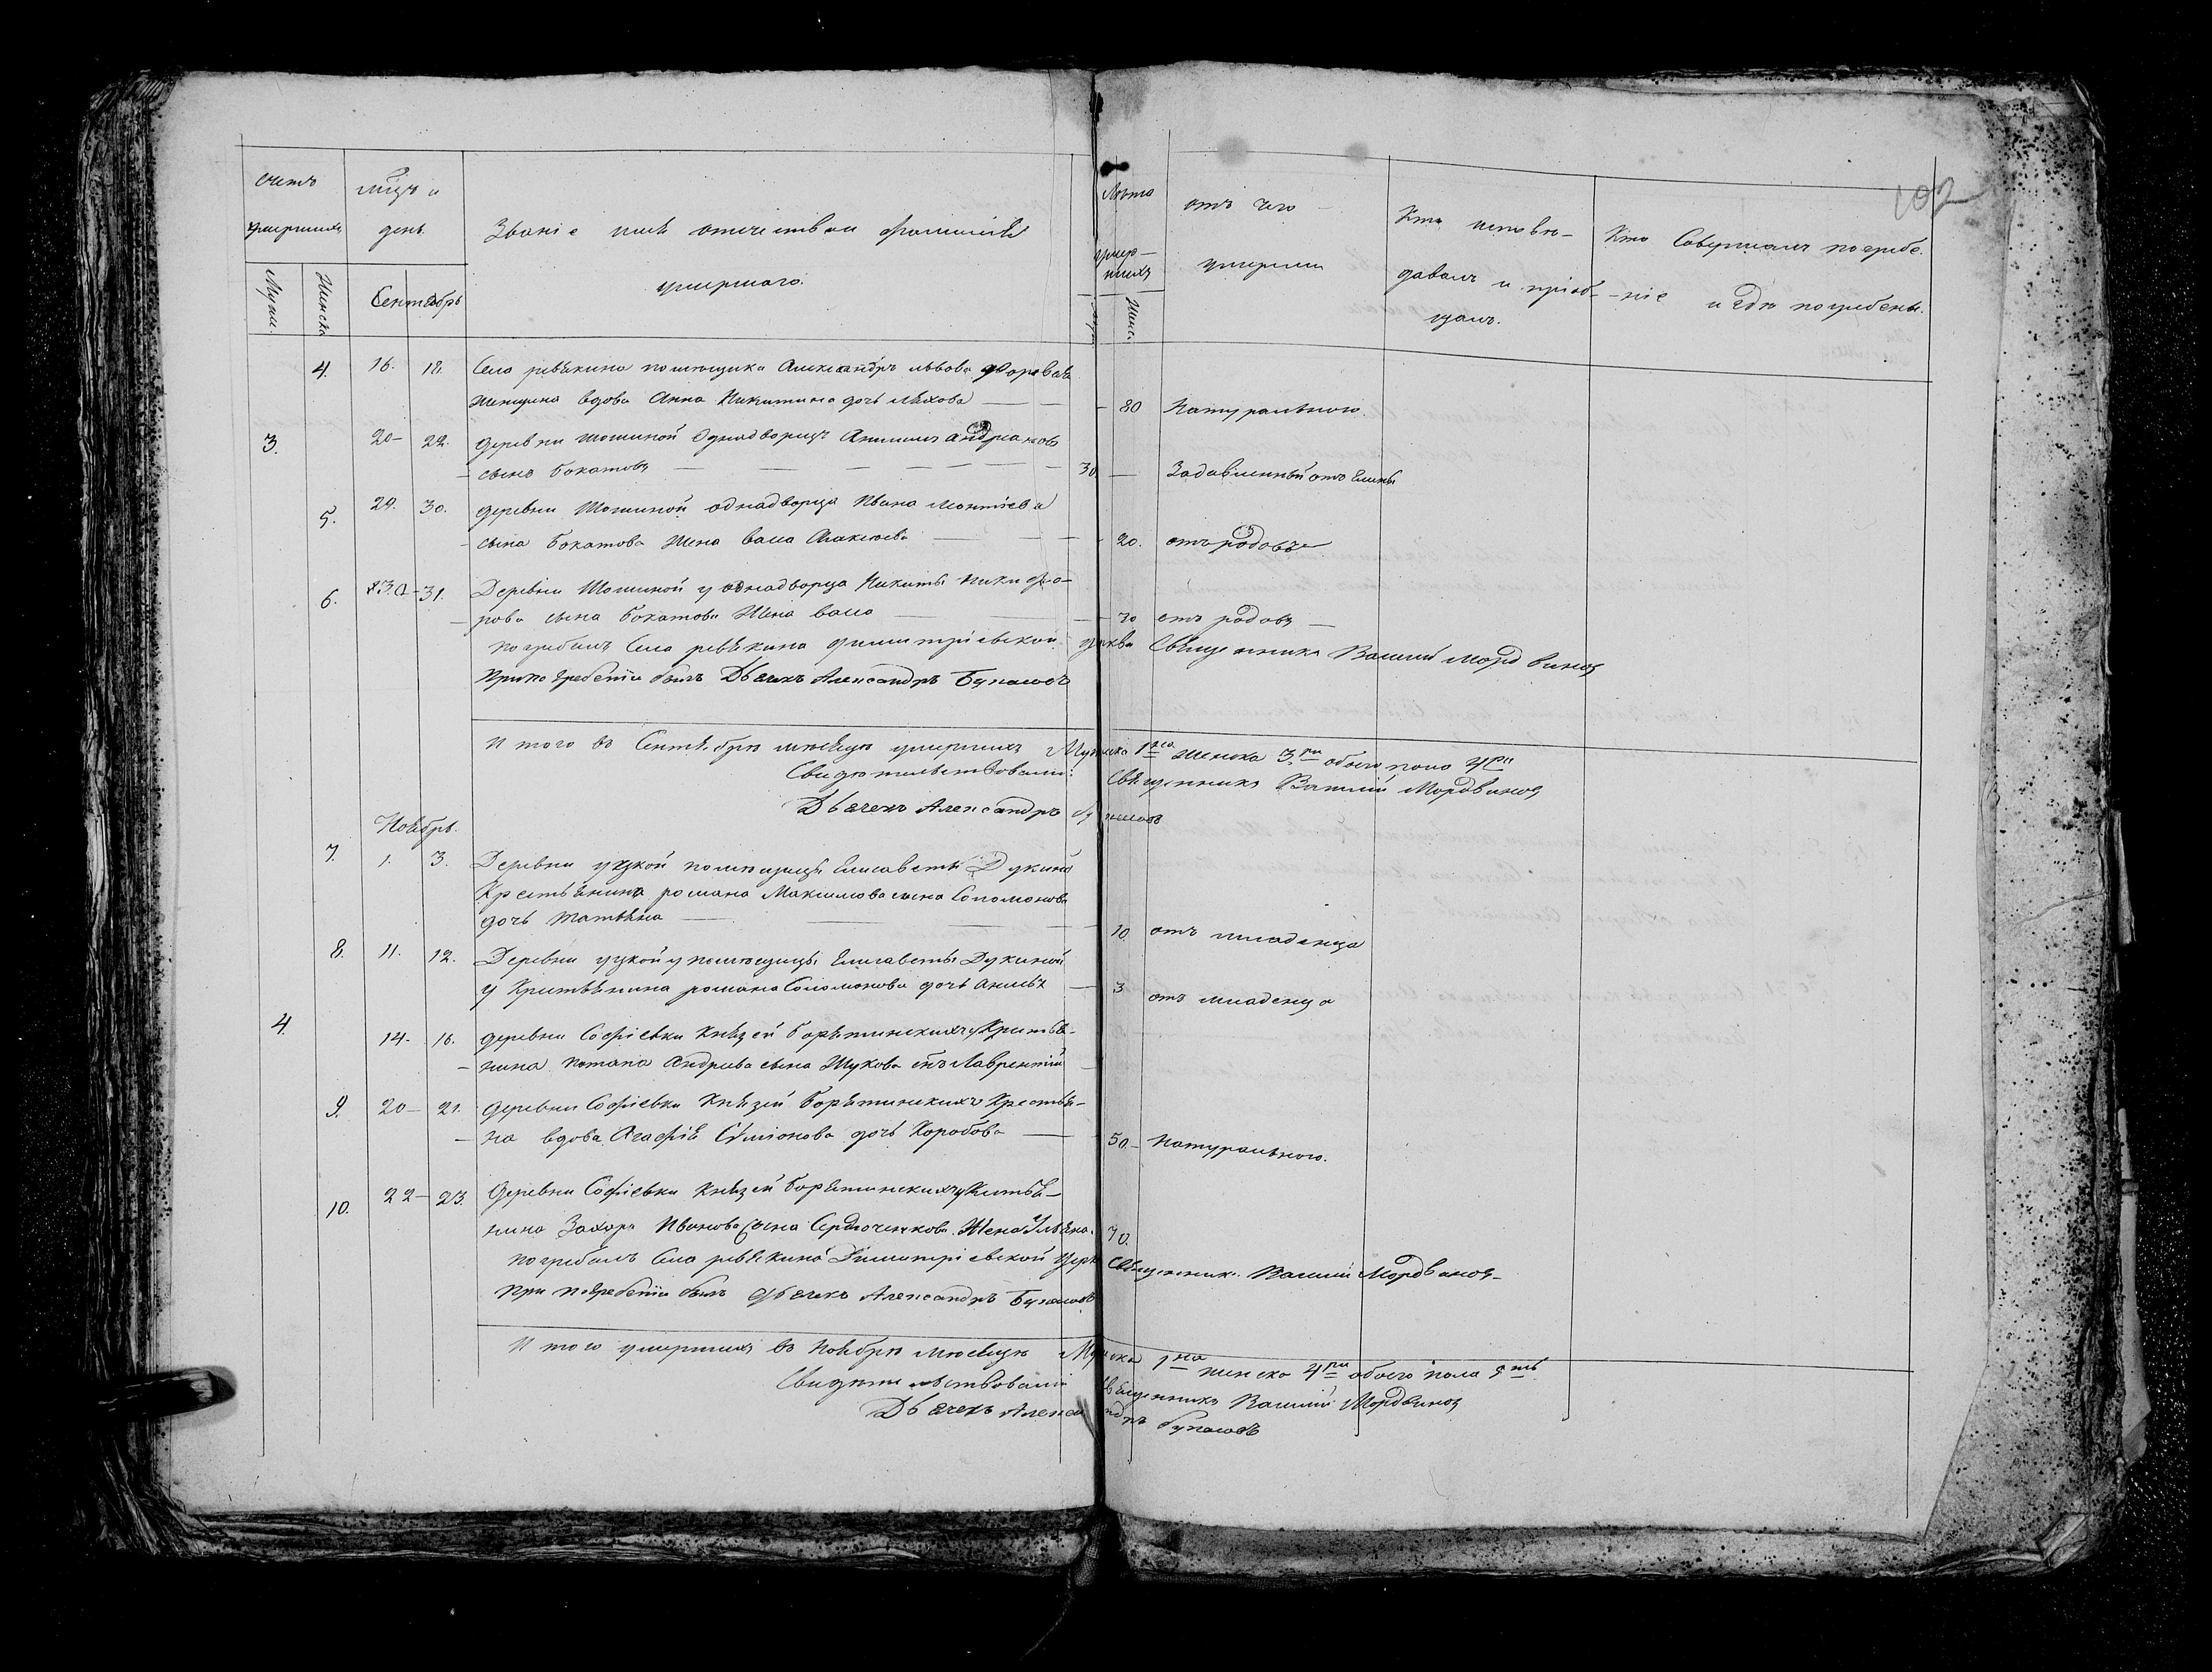 102
Счетъ умершихъ
Муж. Женска
мцъ и день.
Сентябрь
Званіе имя отечество и фамилія
умершаго.
Лѣта умер-
шихъ
Женс.
отъ чего
умерли
Кто исповѣ-
давалъ и пріоб-
щалъ.
Кто Совершалъ погребе-
-ніе и гдѣ погребены.
4. 16. 18. Села ревякина помѣщика Александръ львова дворовая
женщина вдова Анна Никитина дочь 80 Натуральною.
3. 20- 22. деревни Шошиной Однадворецъ андриановъ
сынъ Бокатовъ 30. Задавленный отъ
5. 29. 30. деревни Шошиной однадворца Ивана Леонтіева
сына Бокатова Жена васа 20. отъ родовъ
6. 30 - 31. Деревни Шошиной у однадворца Никиты Никифо-
рова сына Бокатова Жена васа 30 отъ родовъ
погребалъ Села ревякина димитріевской церкви Священникъ Василій Мордвиновъ
При погребеніи былъ Дьячекъ Александръ
Итого въ Сентябрѣ месецѣ умершихъ Мужска 1 женска 3 обоего пола 4
Свидѣтельствовали: Священникъ Василій Мордвиновъ
Дьячекъ Александръ
Ноябрь.
7. 1. 3. Деревни узкой помѣщицы Елисаветы Дукиной
Крестьянина романа Максимова сына Соломонова
дочь татьяна 10 отъ младенца
8. 11. 12. Деревни узкой у помѣщицы Елисаветы Дукиной
у Крестьянина романа Соломонова дочь 3 отъ младенца
4 14- 16. деревни Софіевки Князей Борятинскихъ у Крестья-
нина потапа Андрева сына Жукова Лаврентій
9. 20- 21. деревни Софіевки Князей Борятинскихъ Крестья-
на вдова Агафія Симіонова дочь Коробова 50- Натуральною.
10. 22- 23. деревни Софіевки Князей Борятинскихъ у
нина Захара Иванова Сына Жена Ульяна. 70.
погребалъ Села ревякина Димитріевской Церк Священник. Василій Мордвиновъ
При погребеніи былъ дьячекъ Александръ
Итого умершихъ въ Ноябрѣ месецѣ Мужска 1 женска 4 обоего пола 5
Свидѣтельствовали Священникъ Василій Мордвиновъ
Дьячекъ Александръ